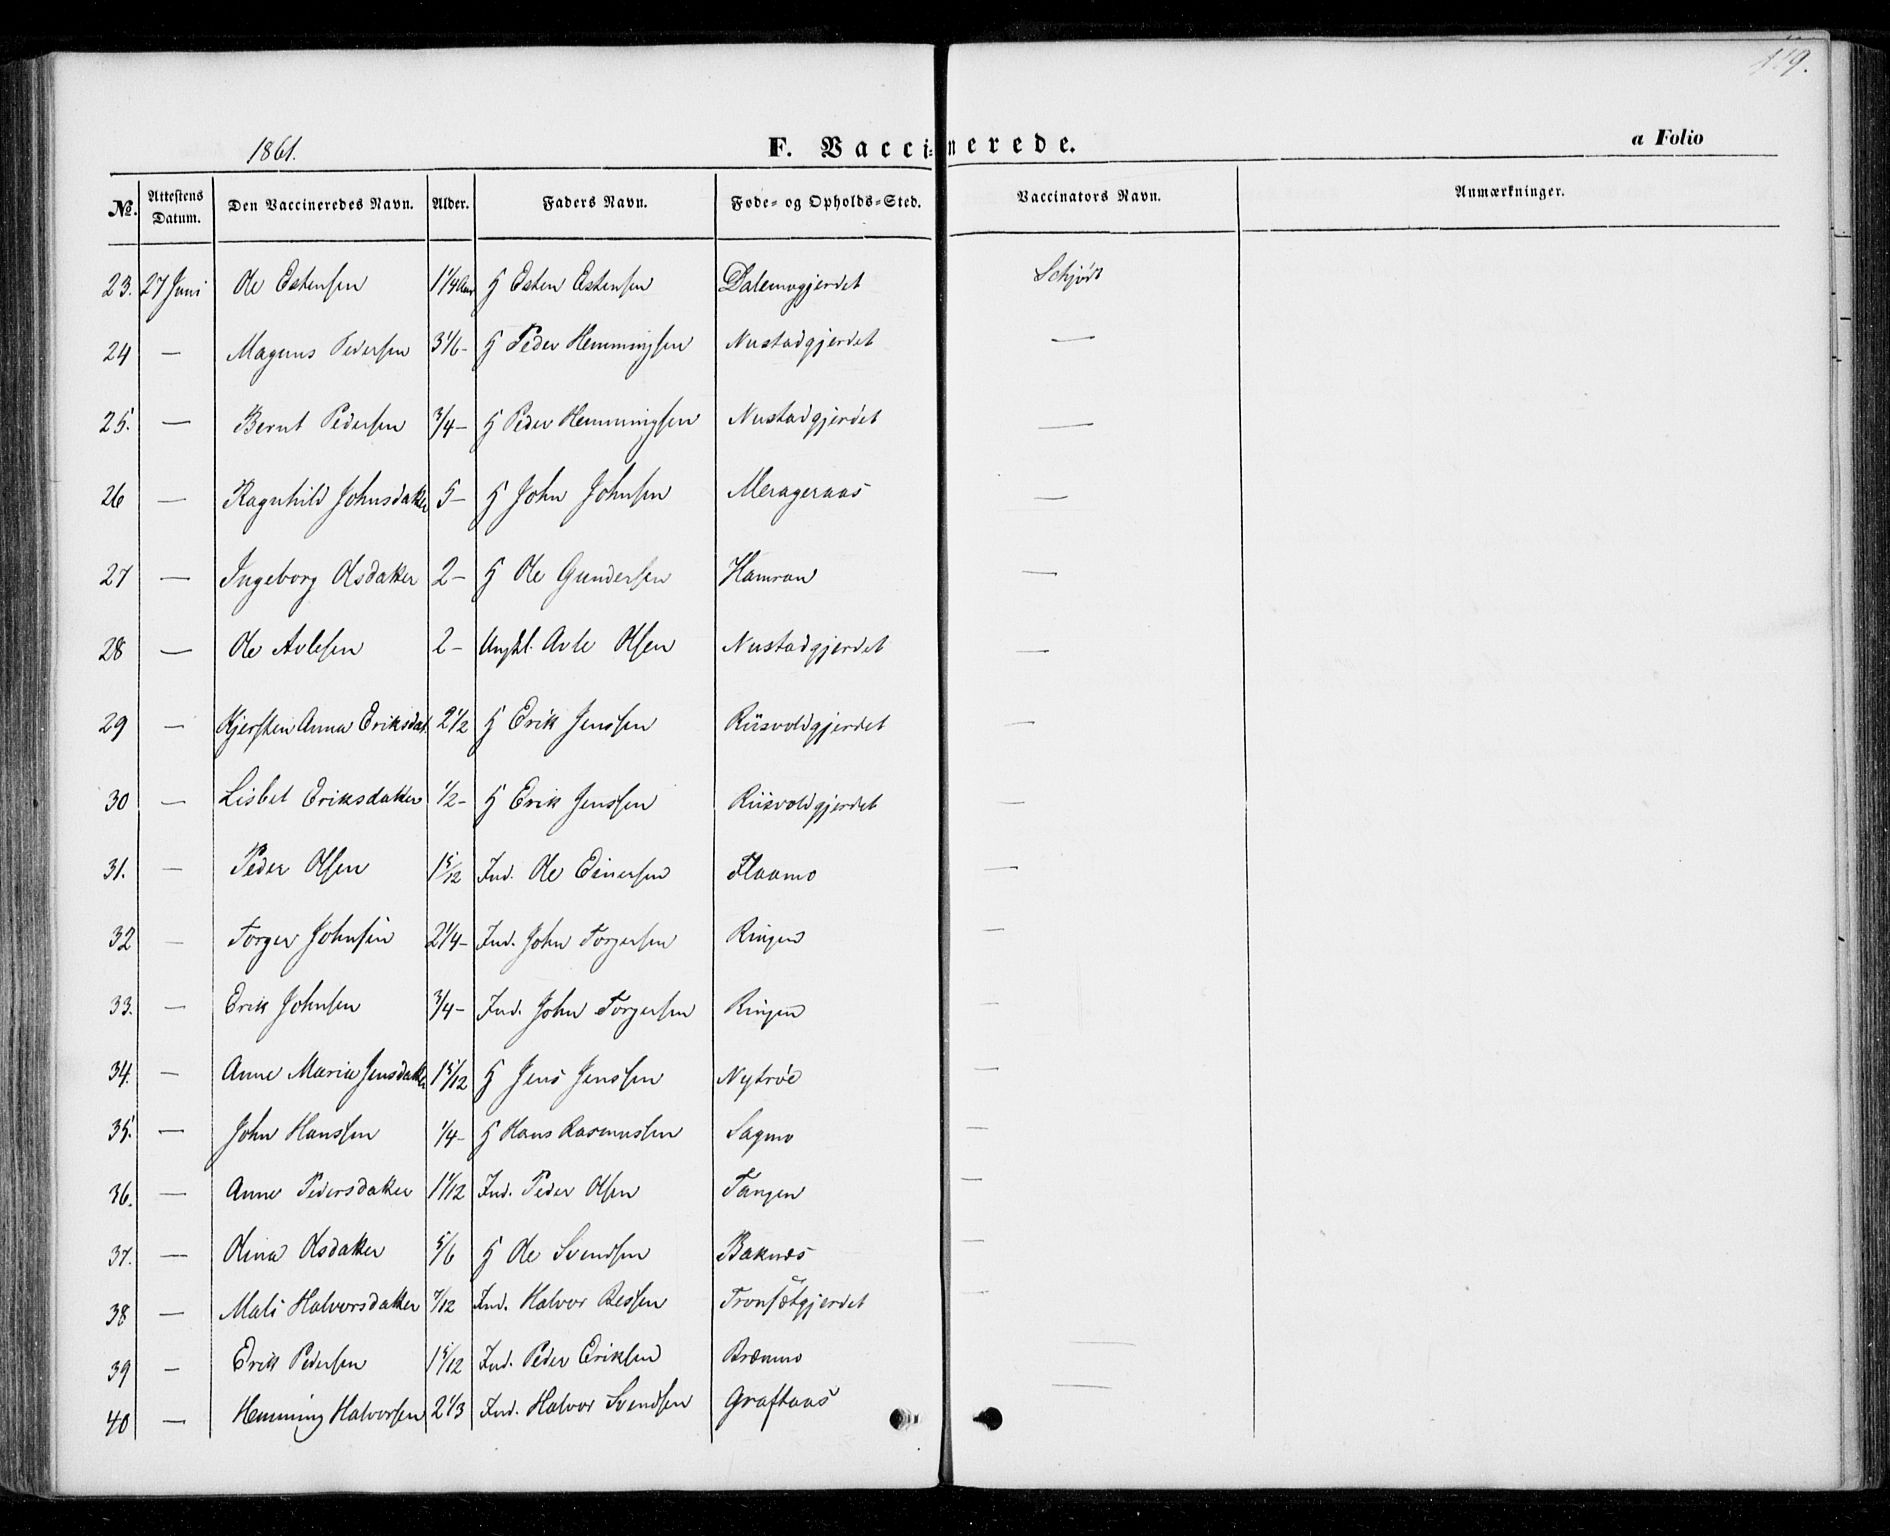 119.
1861.
F. Vaccinerede.
a Folio
№. Attestens Datum. Den Vaccineredes Navn. Alder. Faders Navn. Føde- og Opholds-Sted. Vaccinators Navn. Anmærkninger.
23. 27 Juni Ole Estensen 1 1/4 Aar G Esten Estensen Dalemogjerdet Schjødt
24 — Magnus Pedersen 3 1/6 - G Peder Hemmingsen Nustadgjerdet —
25. — Bernt Pedersen 3/4 - G Peder Hemmingsen Nustadgjerdet —
26 — Ragnhild Johnsdatter 5 - G John Johnsen Merageraas —
27 — Ingeborg Olsdatter 2 - G Ole Gundersen Hamran —
28 — Ole Avlesen 2 - Ungkl. Avle Olsen Nustadgjerdet —
29 — Kjersten Anna Eriksdat. 2 1/2 G Erik Jenssen Riisvoldgjerdet —
30 — Lisbet Eriksdatter 1/2 - G Erik Jenssen Riisvoldgjerdet —
31. — Peder Olsen 1 5/12 Ind. Ole Einersen Flaamo —
32 — Torger Johnsen 2 1/4 - Ind. John Torgersen Ringen —
33. — Erik Johnsen 3/4 - Ind. John Torgersen Ringen —
34. — Anne Maria Jensdatter 1 5/12 G Jens Jenssen Nytrøe —
35. — John Hanssen 1/4 - G Hans Rasmussen Sagmo —
36. — Anne Pedersdatter 1 1/12 Ind. Peder Olsen Tangen —
37. — Olina Olsdatter 5/6 G Ole Svendsen Baknæs —
38 — Mali Halvorsdatter 7/12 Ind. Halvor Bessen Tronsætgjerdet —
39 — Erik Pedersen 1 5/12 Ind. Peder Eriksen Brænmo —
40 — Hemming Halvorsen 2 1/3 Ind. Halvor Svendsen Graftaas —